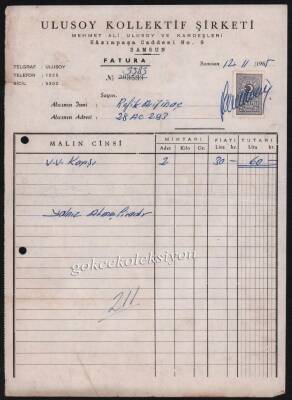 ULUSOY KOLLEKTİF ŞİRKETİ
MEHMET ALİ ULUSOY VE KARDEŞLERİ
Kâzımpaşa Caddesi No. 9
SAMSUN
FATURA
TELGRAF : ULUSOY
TELEFON : 1025
SİCİL : 5302
№ 3383
Samsun 12 11 1965
Sayın,
Alıcının İsmi :
Alıcının Adresi : 28 AC 293
MALIN CİNSİ
MİKTARI FİATI TUTARI
Adet Kilo Gr. Lira kr. Lira kr.
V.V. Kayışı 2 30 — 60 —
Yalnız Altmış liradır
gokcekoleksiyon
211